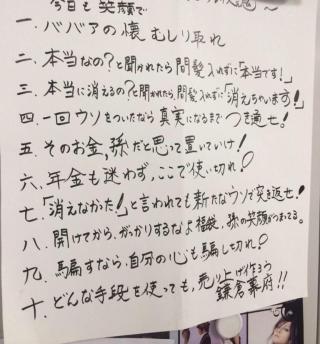 今日も笑顔で
一．ババアの懐むしり取れ
二．本当なの？と聞かれたら間髪入れずに「本当です！」
三．本当に消えるの？と聞かれたら、間髪入れずに「消えちゃいます！」
四．一回ウソをついたなら真実になるまでつき通せ！
五．そのお金、孫だと思って置いていけ！
六．年金も迷わず、ここで使い切れ？
七．「消えなかった！」と言われても新たなウソで突き返せ！
八．開けてから、がっかりするなよ福袋、孫の笑顔がつまってる。
九．騙すなら、自分の心も騙し切れ？
十．どんな手段を使っても、売り上げ作ろう
鎌倉幕府！！